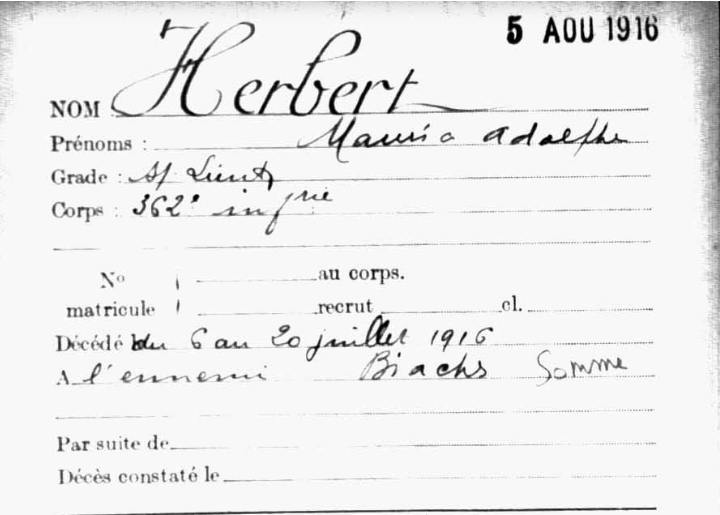 5 AOU 1916
NOM Herbert
Prénoms : Maurice Adolphe
Grade : s/ Lieut
Corps : 362e infrie
No au corps.
matricule recrut cl.
Décédé du 6 au 20 juillet 1916
A l'ennemi Biachs Somme
Par suite de
Décès constaté le